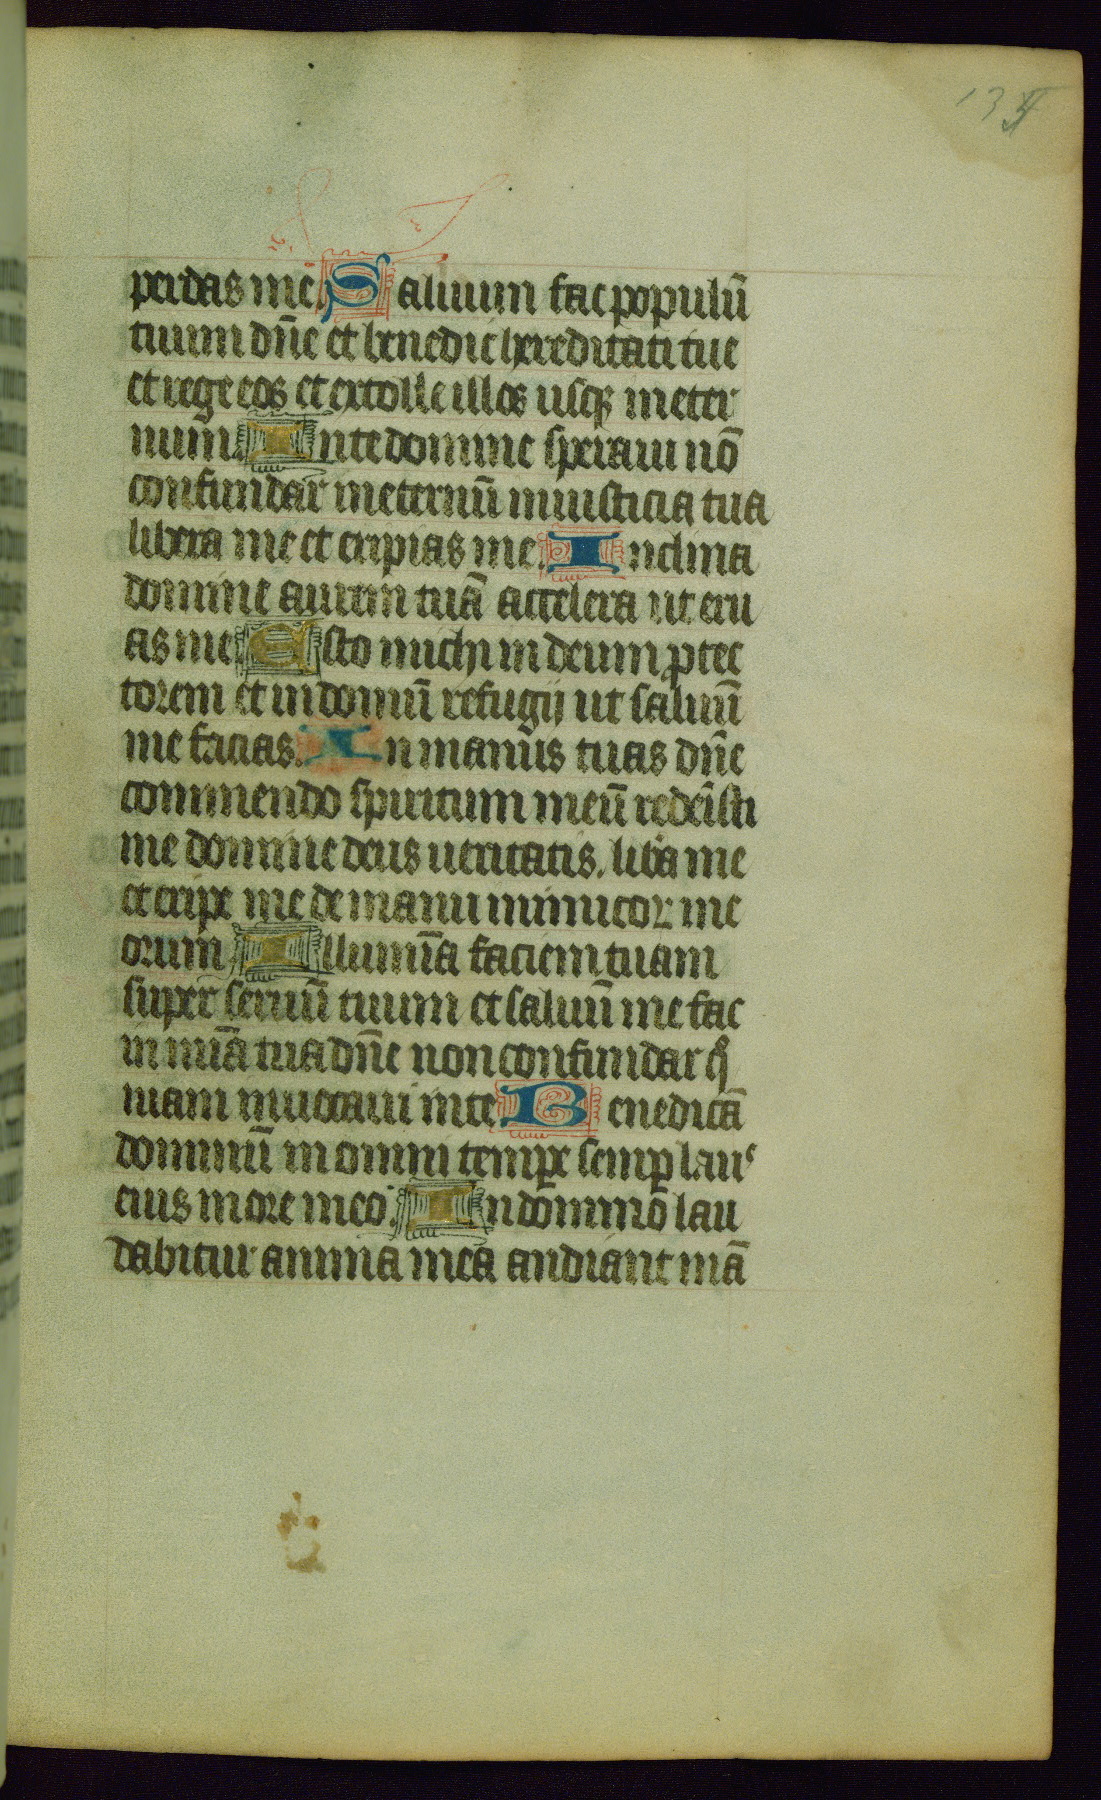 134
perdas me Saluum fac populū
tuum dn̄e et benedic hereditati tue
et rege eos et extolle illos usqꝫ in eter
num. In te domine speraui nō
confundar in eternū in iusticia tua
libera me et eripias me. Inclina
domine aurem tuā accelera ut eru
as me Esto michi in deum ꝓtec
torem et in domū refugij ut saluū
me facias. In manus tuas dn̄e
commendo spiritum meū redemisti
me domine deus ueritatis. liba me
et eripe me de manu inimicoꝝ me
orum Illumīa faciem tuam
super seruū tuum et saluū me fac
in mīa tua dn̄e non confundar qͦ
niam inuocaui in te Benedicā
dominū in omni tempꝛe semꝑ laus
eius in ore meo. In domino lau
dabitur anima mea audiant mā